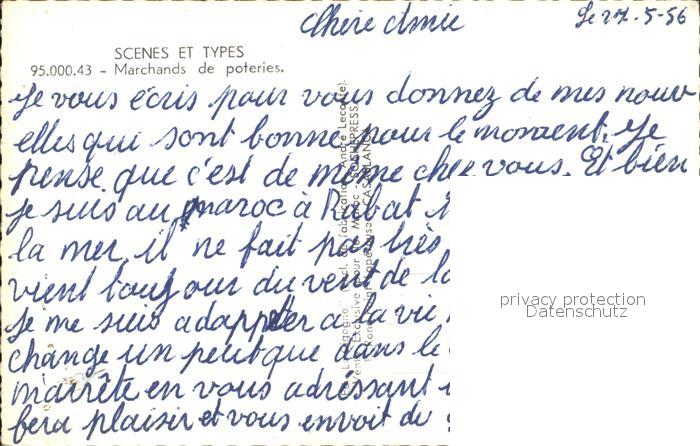 Chère Amie
Le 27.5-56
SCENES ET TYPES
95.000.43 - Marchands de poteries.
Je vous écris pour vous donnez de mes nouv
elles qui sont bonne pour le moment. Je
pense que c'est de même chez vous. Et bien
je suis au maroc à Rabat
la mer, il ne fait pas très
vient toujour du vent de la
Je me suis adapter a la vie
change un peut que dans le
m'arrête en vous adressant
fera plaisir et vous envoit du
privacy protection
Datenschutz